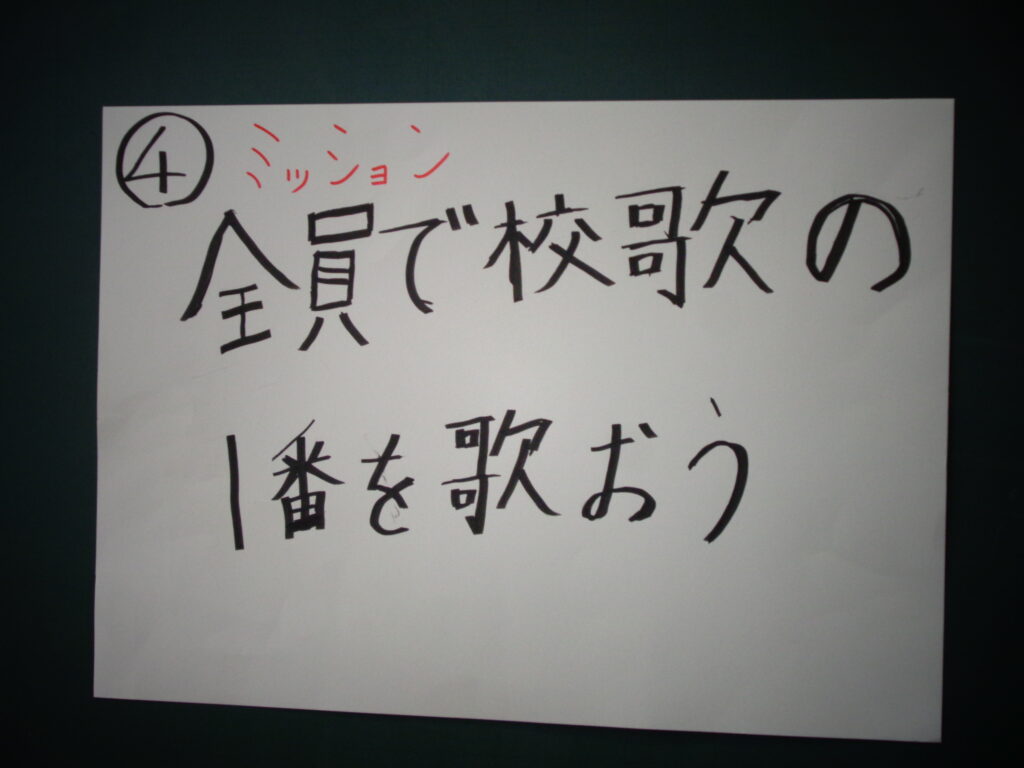 ④ ミッション
全員で校歌の
1番を歌おう